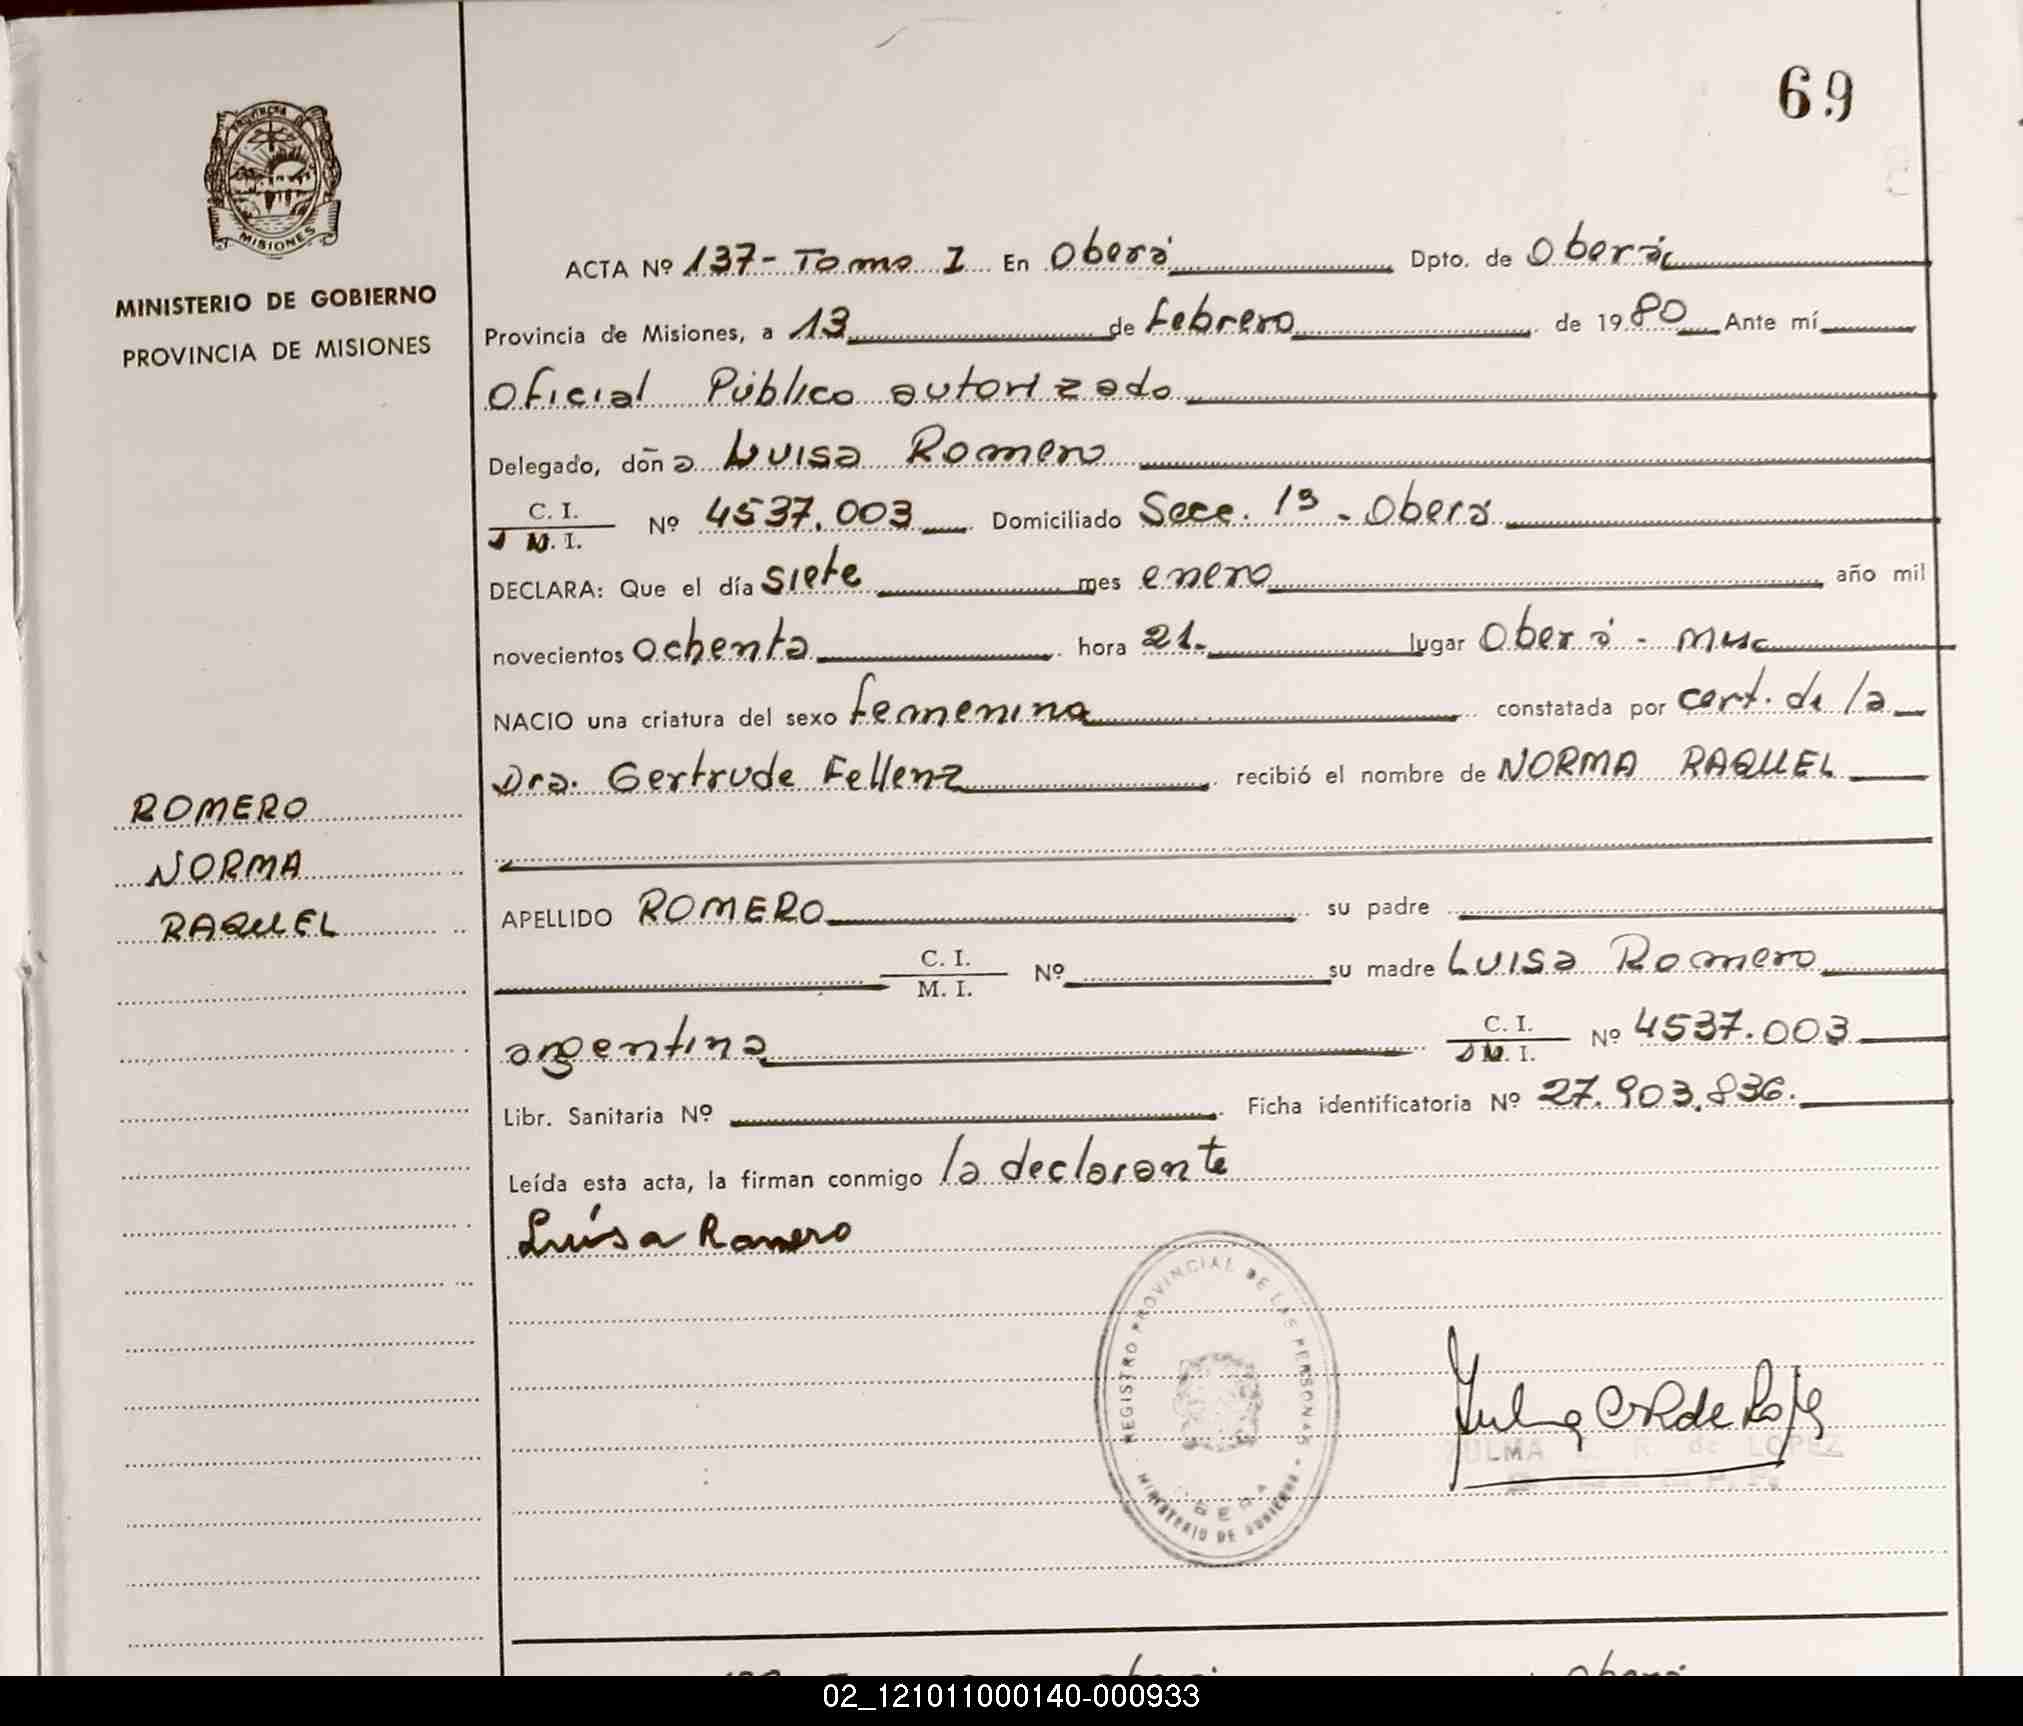 69
PROVINCIA DE
MISIONES
MINISTERIO DE GOBIERNO
PROVINCIA DE MISIONES
ACTA Nº 137 - Tomo I En Oberá Dpto. de Oberá
Provincia de Misiones, a 13 de febrero de 1980 Ante mí
Oficial Público autorizado
Delegado, doña Luisa Romero
C. I.
M. I. Nº 4537.003 Domiciliado Secc. 13 - Oberá
DECLARA: Que el día siete mes enero año mil
novecientos ochenta hora 21.- lugar Oberá - Mnes
NACIO una criatura del sexo femenino constatada por cert. de la
Dra. Gertrude Fellenz recibió el nombre de NORMA RAQUEL
ROMERO
NORMA
RAQUEL
APELLIDO ROMERO su padre
C. I.
M. I. Nº su madre Luisa Romero
argentina C. I.
I. Nº 4537.003
Libr. Sanitaria Nº Ficha identificatoria Nº 27.903.836.
Leída esta acta, la firman conmigo la declarante
Luisa Romero
REGISTRO PROVINCIAL DE LAS PERSONAS
OBERA
MINISTERIO DE GOBIERNO
ZULMA C. R. de LOPEZ
02_121011000140-000933